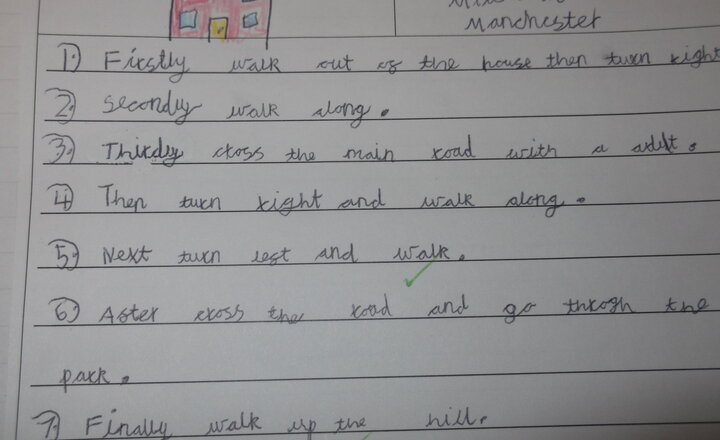 Manchester
1) Firstly walk out of the house then turn right
2) Secondly walk along.
3) Thirdly cross the main road with a adult.
4) Then turn right and walk along.
5) Next turn left and walk.
6) After cross the road and go throgh the
park.
7) Finally walk up the hill.